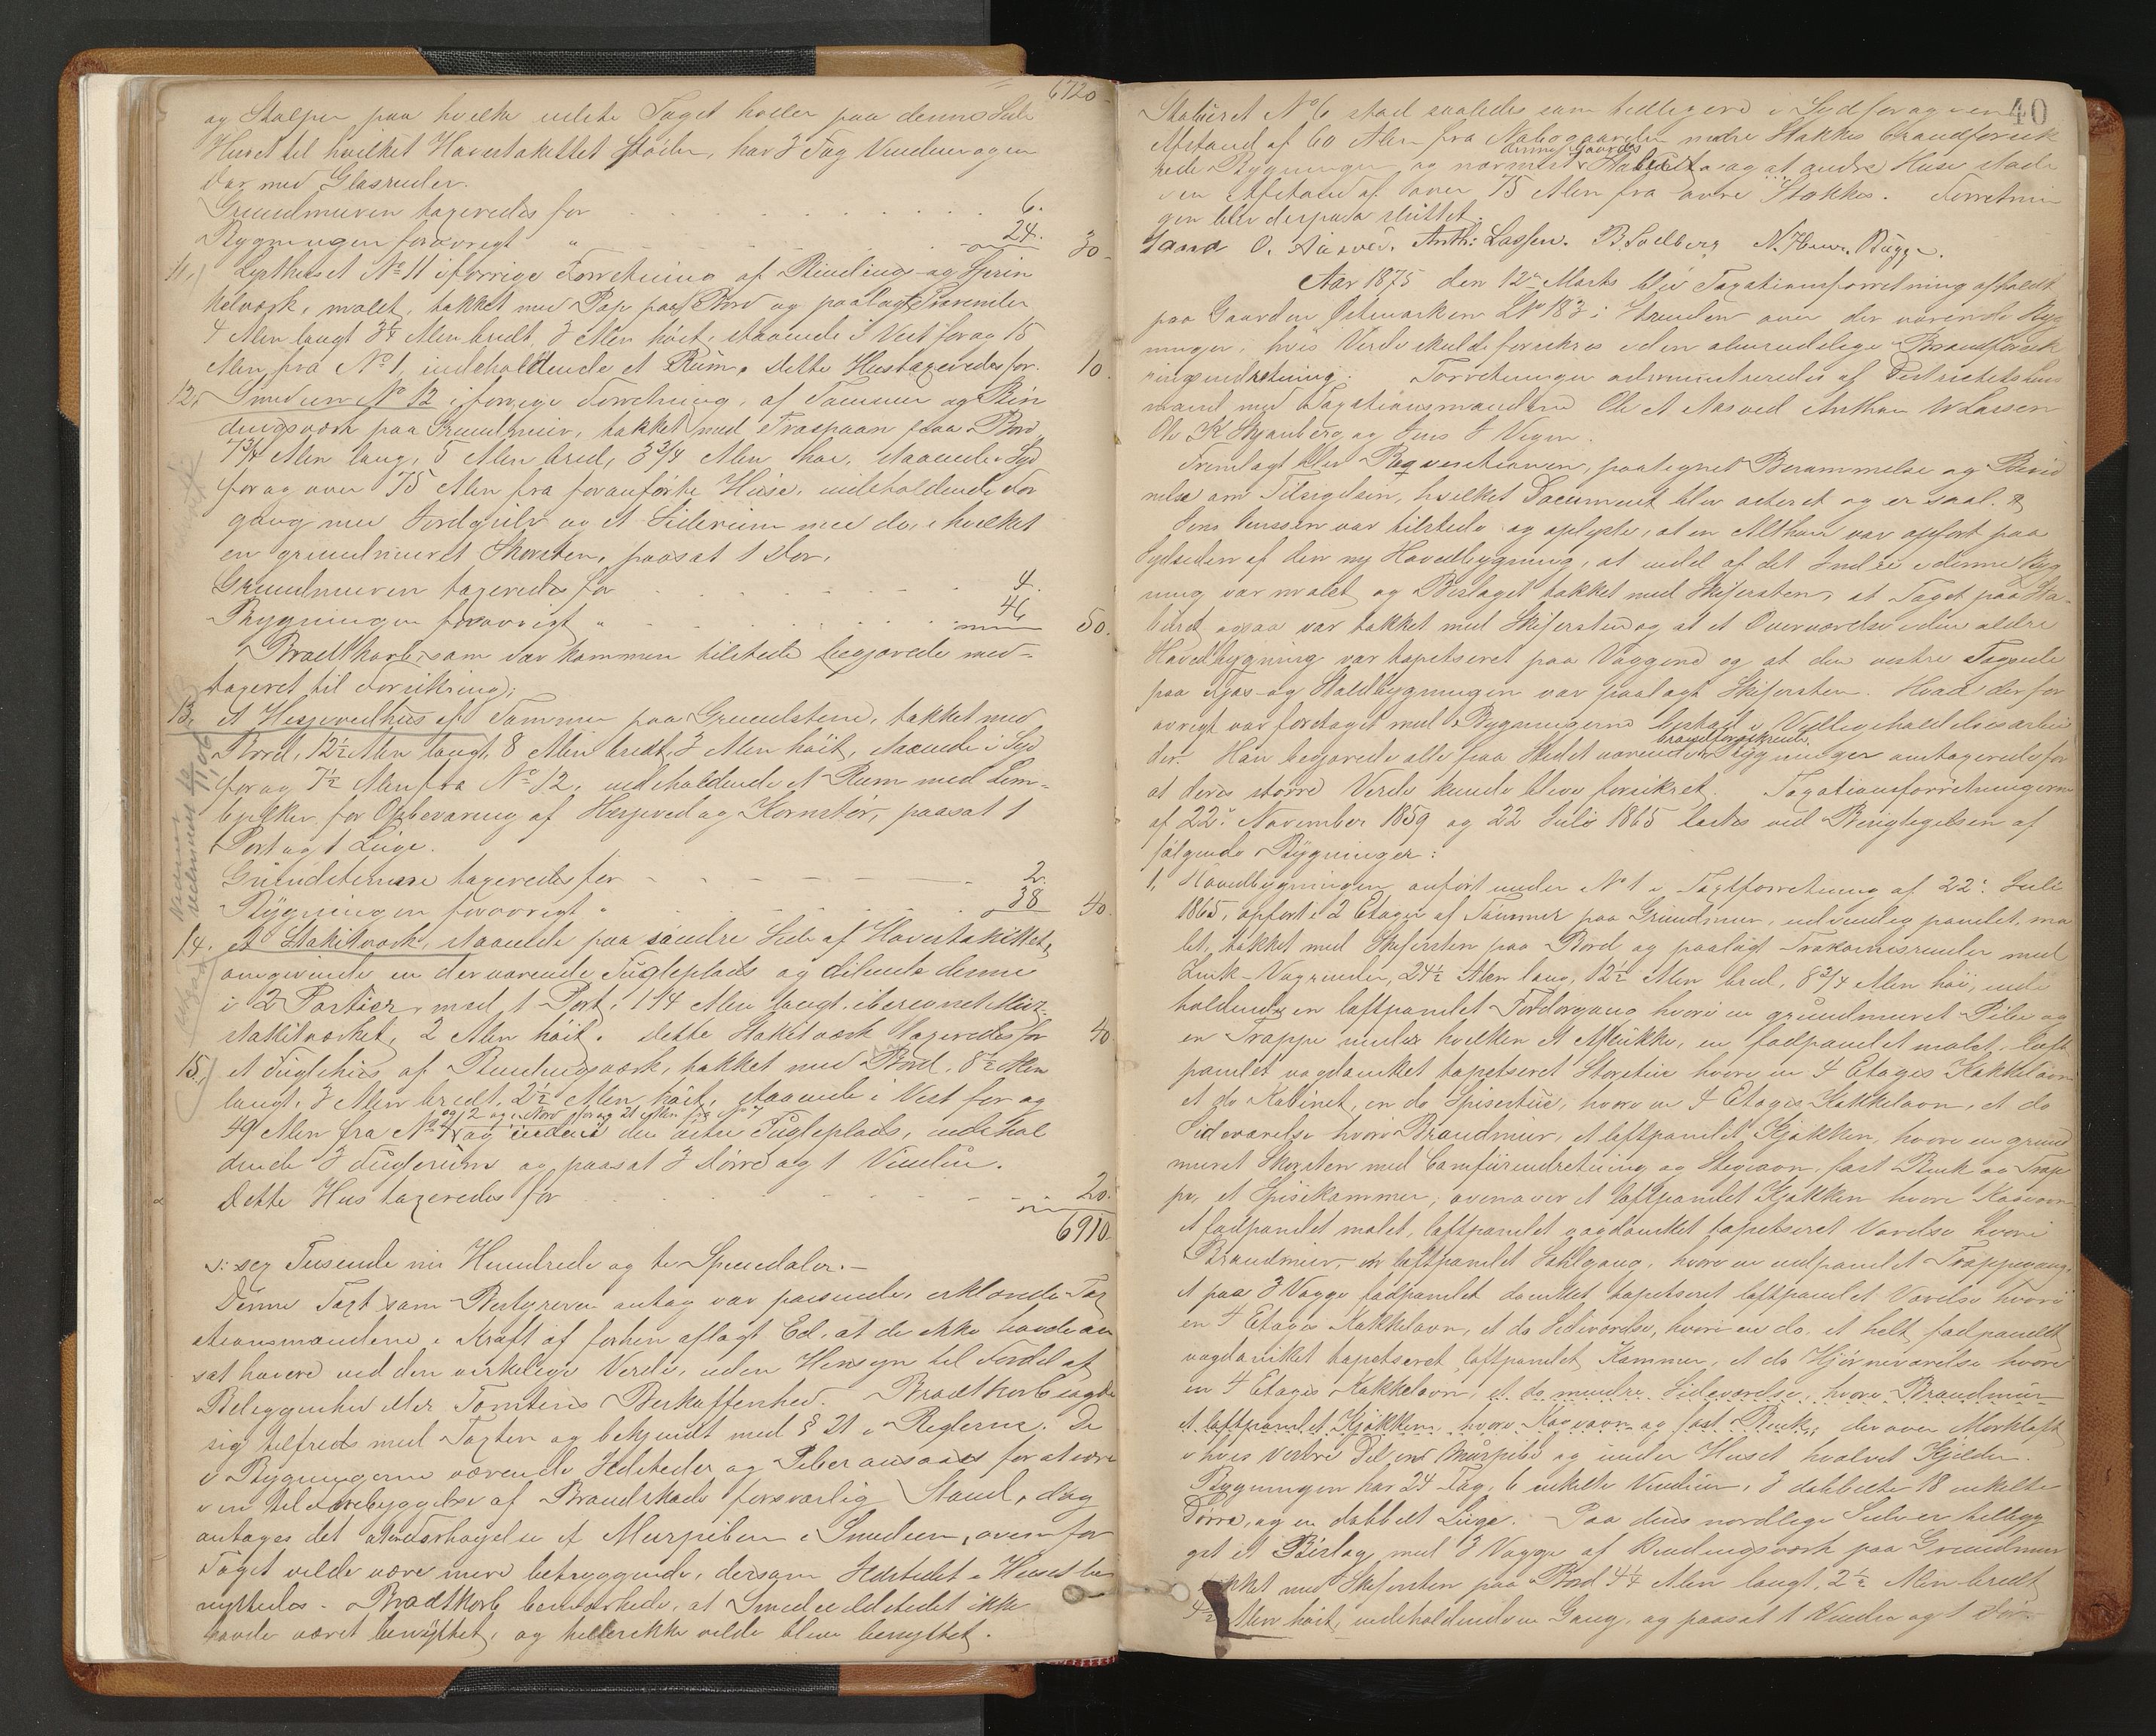 6720
og Stolper paa hvilke udste Taget holler paa dennes Side
Huset til hvilket Havestakittet støder, har 3 Fag Vinduer og en
Dør med Glasruder.
Grundmuren taxeredes for 6.
Bygningen forøvrigt " 24. 30
11, Lysthuset No 11 i forrige Forretning af Bindings- og Sprin
kelværk, malet, takket med Pap paa Bord og paalagt Tagrender
4 Alen langt 3¼ Alen bredt, 3 Alen høit, staaende i Vest for og 15
Alen fra No 1, indeholdende et Rum. Dette Hus taxeredes for 10
12, Smedien No 12 i forrige Forretning, af Tømmer og Bin
dingsværk paa Grundmur, takket med Træspaan paa Bord
7¾ Alen lang, 5 Alen bred, 3¾ Alen høi, staaende i Syd
for og over 75 Alen fra foranførte Huse, indeholdende For
gang med Jordgulv og et Siderum med do, i hvilket
en grundmuret Skorsten, paasat 1 Dør.
Grundmuren taxeredes for 4.
Bygningen forøvrigt " 46 50.
Bradtkorb, som var kommen tilstede begjærede med-
taxeret til Forsikring:
13, et Hesjevedhus af Tømmer paa Grundstene, takket med
Bord, 12½ Alen langt, 8 Alen bredt, 3 Alen høit, staaende i Syd
for og 7½ Alen fra No 12, indeholdende et Rum med Lem-
bjelker for Opbevaring af Hesjeved og Kornstør, paasat 1
Port og 1 Luge.
Grundstenene taxeredes for 2.
Bygningen forøvrigt " 38 40.
14. et Stakitværk, staaende paa søndre Side af Havestakittet,
omgivende en derværende Fugleplads og delende denne
i 2 Partier, med 1 Port, 114 Alen langt iberegnet
stakitværket, 2 Alen høit. Dette Stakitværk taxeredes for 40
15, et Fuglehus af Bindingsværk, takket med Bord, 8½ Alen
langt, 3 Alen bredt, 2½ Alen høit, staaende i Vest for og
49 Alen fra No 1 og 2 og i Nord for og 21 Alen fra No 7 og indenfor den Fugleplads, indehol
dende 3 Fuglerum og paasat 3 Dørre og 1 Vindue.
Dette Hus taxeredes for 20.
6910
s: sex Tusinde ni Hundrede og ti Speciedaler.-
Denne Taxt som Bestyreren antog var passende, erklærede Tax
ationsmændene i Kraft af forhen aflagt Ed, at de ikke havde an
sat høiere end den virkelige Verdi, uden Hensyn til Fordel af
Beliggenhed eller Tomtens Beskaffenhed. Bradtkorb sagde
sig tilfreds med Taxten og bekjendt med § 21 i Reglerne. De
i Bygningerne værende Ildsteder og Piber ansaaes for at være
i en til Forebyggelse af Brandskade forsvarlig Stand, dog
antages det at en Forhøielse af Murpiben i Smedien, ovenfor
Taget vilde være mere betryggende, dersom Ildstedet i Huset be
nyttedes. - Bradtkorb bemærkede, at Smedieildstedet ikke
havde været benyttet, og heller ikke vilde blive benyttet.
40
Staburet No 6 stod saaledes som tidligere i Syd for og i en
Afstand af 60 Alen fra Nabogaarden nedre Stokkes brandforsik
rede Bygninger og nærmest denne Gaards Stabur og at andre Huse stode
i en Afstand af over 75 Alen fra øvre Stokkes. Forretnin
gen blev derpaa sluttet.
Sand O. Aasved. Anth: Lassen. B. Solberg N. Henr. Bugge.
Aar 1875 den 12te Marts blev Taxationsforretning afholdt
paa Gaarden Østmarken LNo 183 i Strinden over der værende Byg
ninger, hvis Verdi skulde forsikres i den almindelige Brandforsik
ringsindretning. Forretningen administreredes af Districtets Lens
mand med Taxationsmændene Ole A Aasved Anthon W Lassen
Ole K Skjanberg og Jens J Vigen.
Fremlagt blev Requisitionen, paategnet Berammelse og Bevid
nelse om Tilsigelsen, hvilket Document blev acteret og er saal. &
Jens Jenssen var tilstede og oplyste, at en Althan var opført paa
Sydsiden af den ny Hovedbygning, at endel af det Indre i denne Byg
ning var malet og Bislaget takket med Skifersten, at Taget paa Sta-
buret ogsaa var takket med Skifersten og at et Overværelse i den ældre
Hovedbygning var tapetseret paa Væggene og at den vestre Tagside
paa Fjøs- og Staldbygningen var paalagt Skifersten. Hvad der for
øvrigt var foretaget med Bygningerne bestod i Vedligeholdelsesarbei
der. Han begjærede alle paa Stedet værende brandforsikrede Bygninger omtaxerede for
at deres større Verdi kunde blive forsikret. Taxationsforretningerne
af 22de November 1859 og 22 Juli 1865 læstes ved Besigtigelsen af
følgende Bygninger:
1, Hovedbygningen anført under No 1 i Taxtforretning af 22de Juli
1865, opført i 2 Etager af Tømmer paa Grundmur, udvendig panelet, ma
let, takket med Skifersten paa Bord og paalagt Trækarnisrender med
Zink-Tagrender, 24½ Alen lang, 12½ Alen bred, 8¾ Alen høi, inde
holdende en loftpanelet Fordørgang hvori en grundmuret Pibe og
en Trappe under hvilken et Aflukke, en fodpanelet malet, loft
panelet vægdanket tapetseret Storstue hvori en 4 Etages Kakkelovn
et do Kabinet, en do Spisestue, hvori en 4 Etages Kakkelovn, et do
Sideværelse hvori Brandmur, et loftpanelet Kjøkken, hvori en grund
muret Skorsten med Comfurindretning og Stegeovn, fast Bænk og Trap
pe, et Spisekammer, ovenover et loftpanelet Kjøkken hvori Kogeovn
et fodpanelet malet, loftpanelet vægdanket tapetseret Værelse hvori
Brandmur, en loftpanelet Sahlgang, hvori en indpanelet Trappegang,
et paa 3 Vægge fodpanelet danket tapetseret loftpanelet Værelse hvori
en 4 Etages Kakkelovn, et do Sideværelse, hvori en do, et helt fodpanelet
vægdanket tapetseret loftpanelet Kammer, et do Hjørneværelse hvori
en 4 Etages Kakkelovn, et do mindre Sideværelse, hvori Brandmur
et loftpanelet Kjøkken, hvori Kogeovn og fast Bænk, derover Mørkloft
i hvis vestre Del en Murpibe og under Huset hvælvet Kjelder.
Bygningen har 24 Fag, 6 enkelte Vinduer, 3 dobbelte 18 enkelte
Dørre, og en dobbelt Luge. Paa dens nordlige Side er tilbyg
get et Bislag med 3 Vægge af Bindingsværk paa Grundmur
takket med Skifersten paa Bord 4¼ Alen langt, 2½ Alen bredt
4½ Alen høit, indeholdende en Gang, og paasat 1 Vindue og 1 Dør